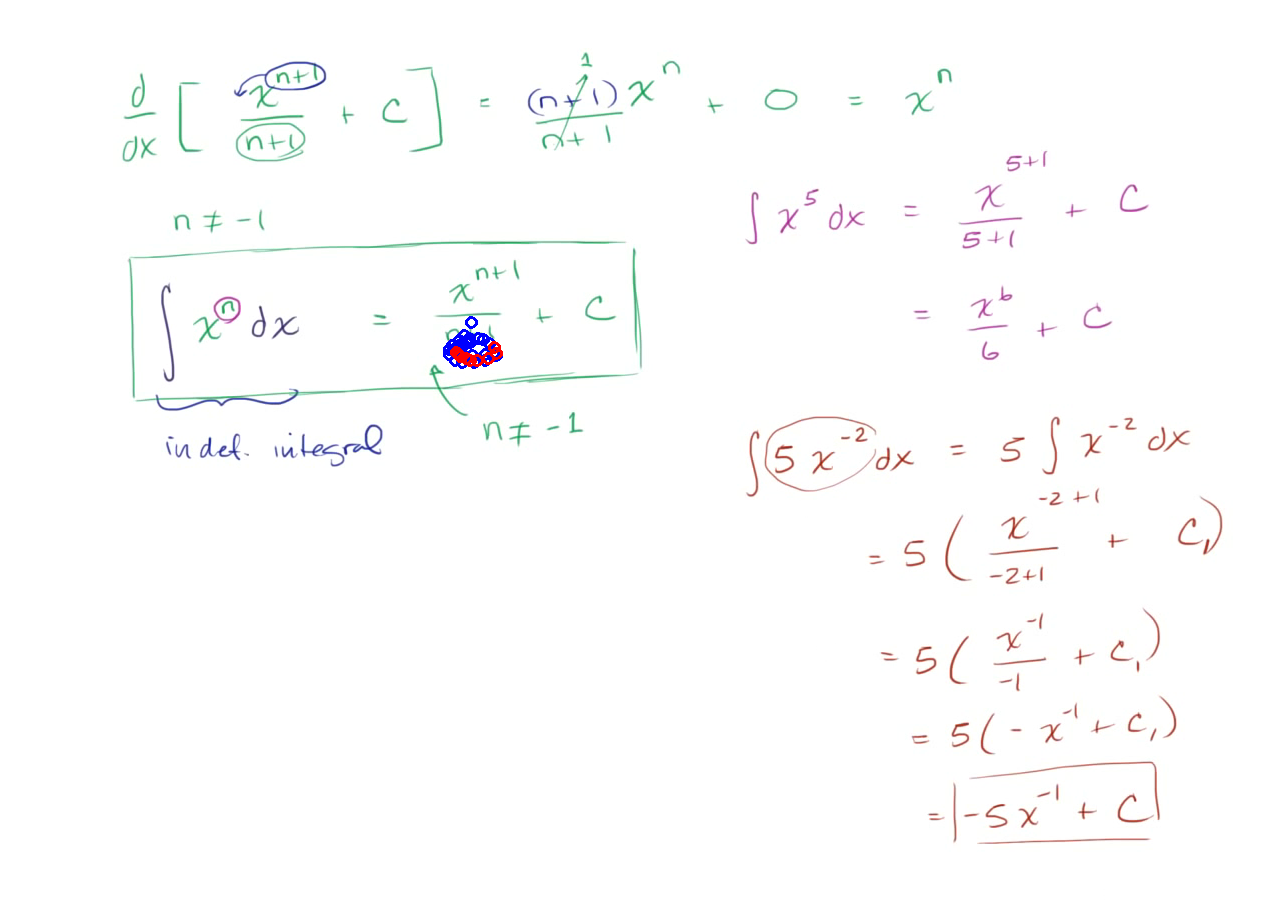 d/dx [ x^(n+1)/(n+1) + C ] = (n+1)x^n/(n+1) + 0 = x^n
1
n ≠ -1
∫ x^n dx = x^(n+1)/ + C
n ≠ -1
indef. integral
∫ x^5 dx = x^(5+1)/(5+1) + C
= x^6/6 + C
∫ 5x^-2 dx = 5 ∫ x^-2 dx
= 5 ( x^(-2+1)/(-2+1) + C₁ )
= 5 ( x^-1/-1 + C₁ )
= 5 ( - x^-1 + C₁ )
= -5x^-1 + C